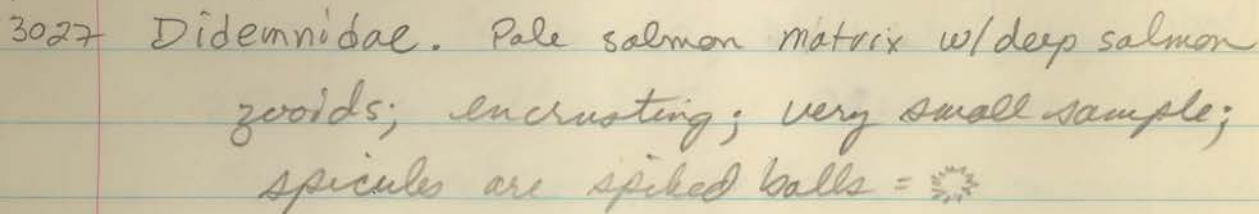 3027 Didemnidae. Pale salmon matrix w/deep salmon
zooids; encrusting; very small sample;
spicules are spiked balls =